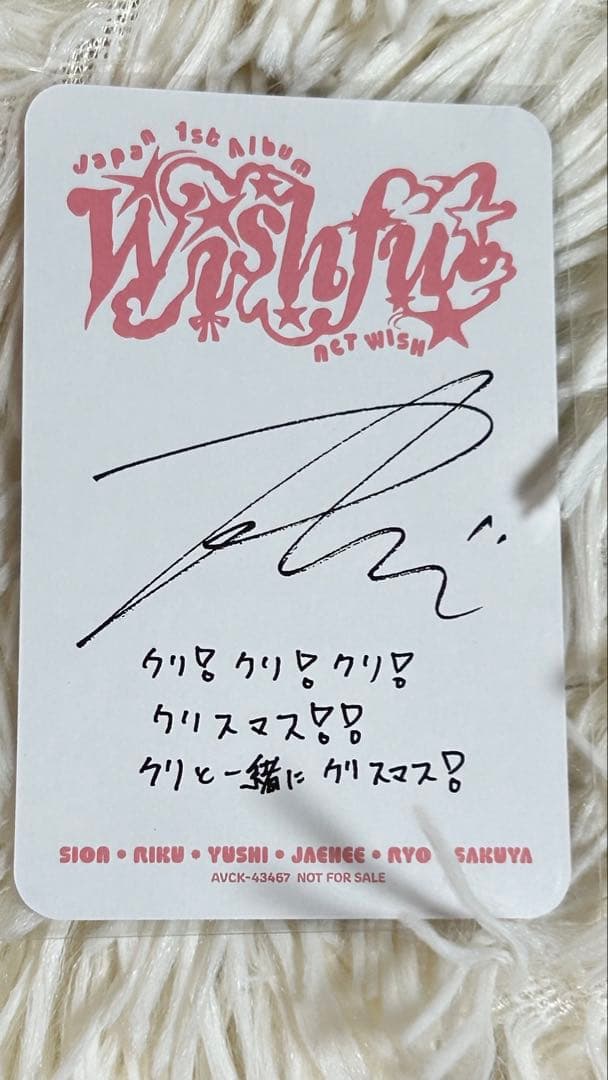 Japan 1st Album
Wishful
NCT WISH
クリ! クリ! クリ!
クリスマス!!
クリと一緒に クリスマス!
SION • RIKU • YUSHI • JAEHEE • RYO SAKUYA
AVCK-43467 NOT FOR SALE